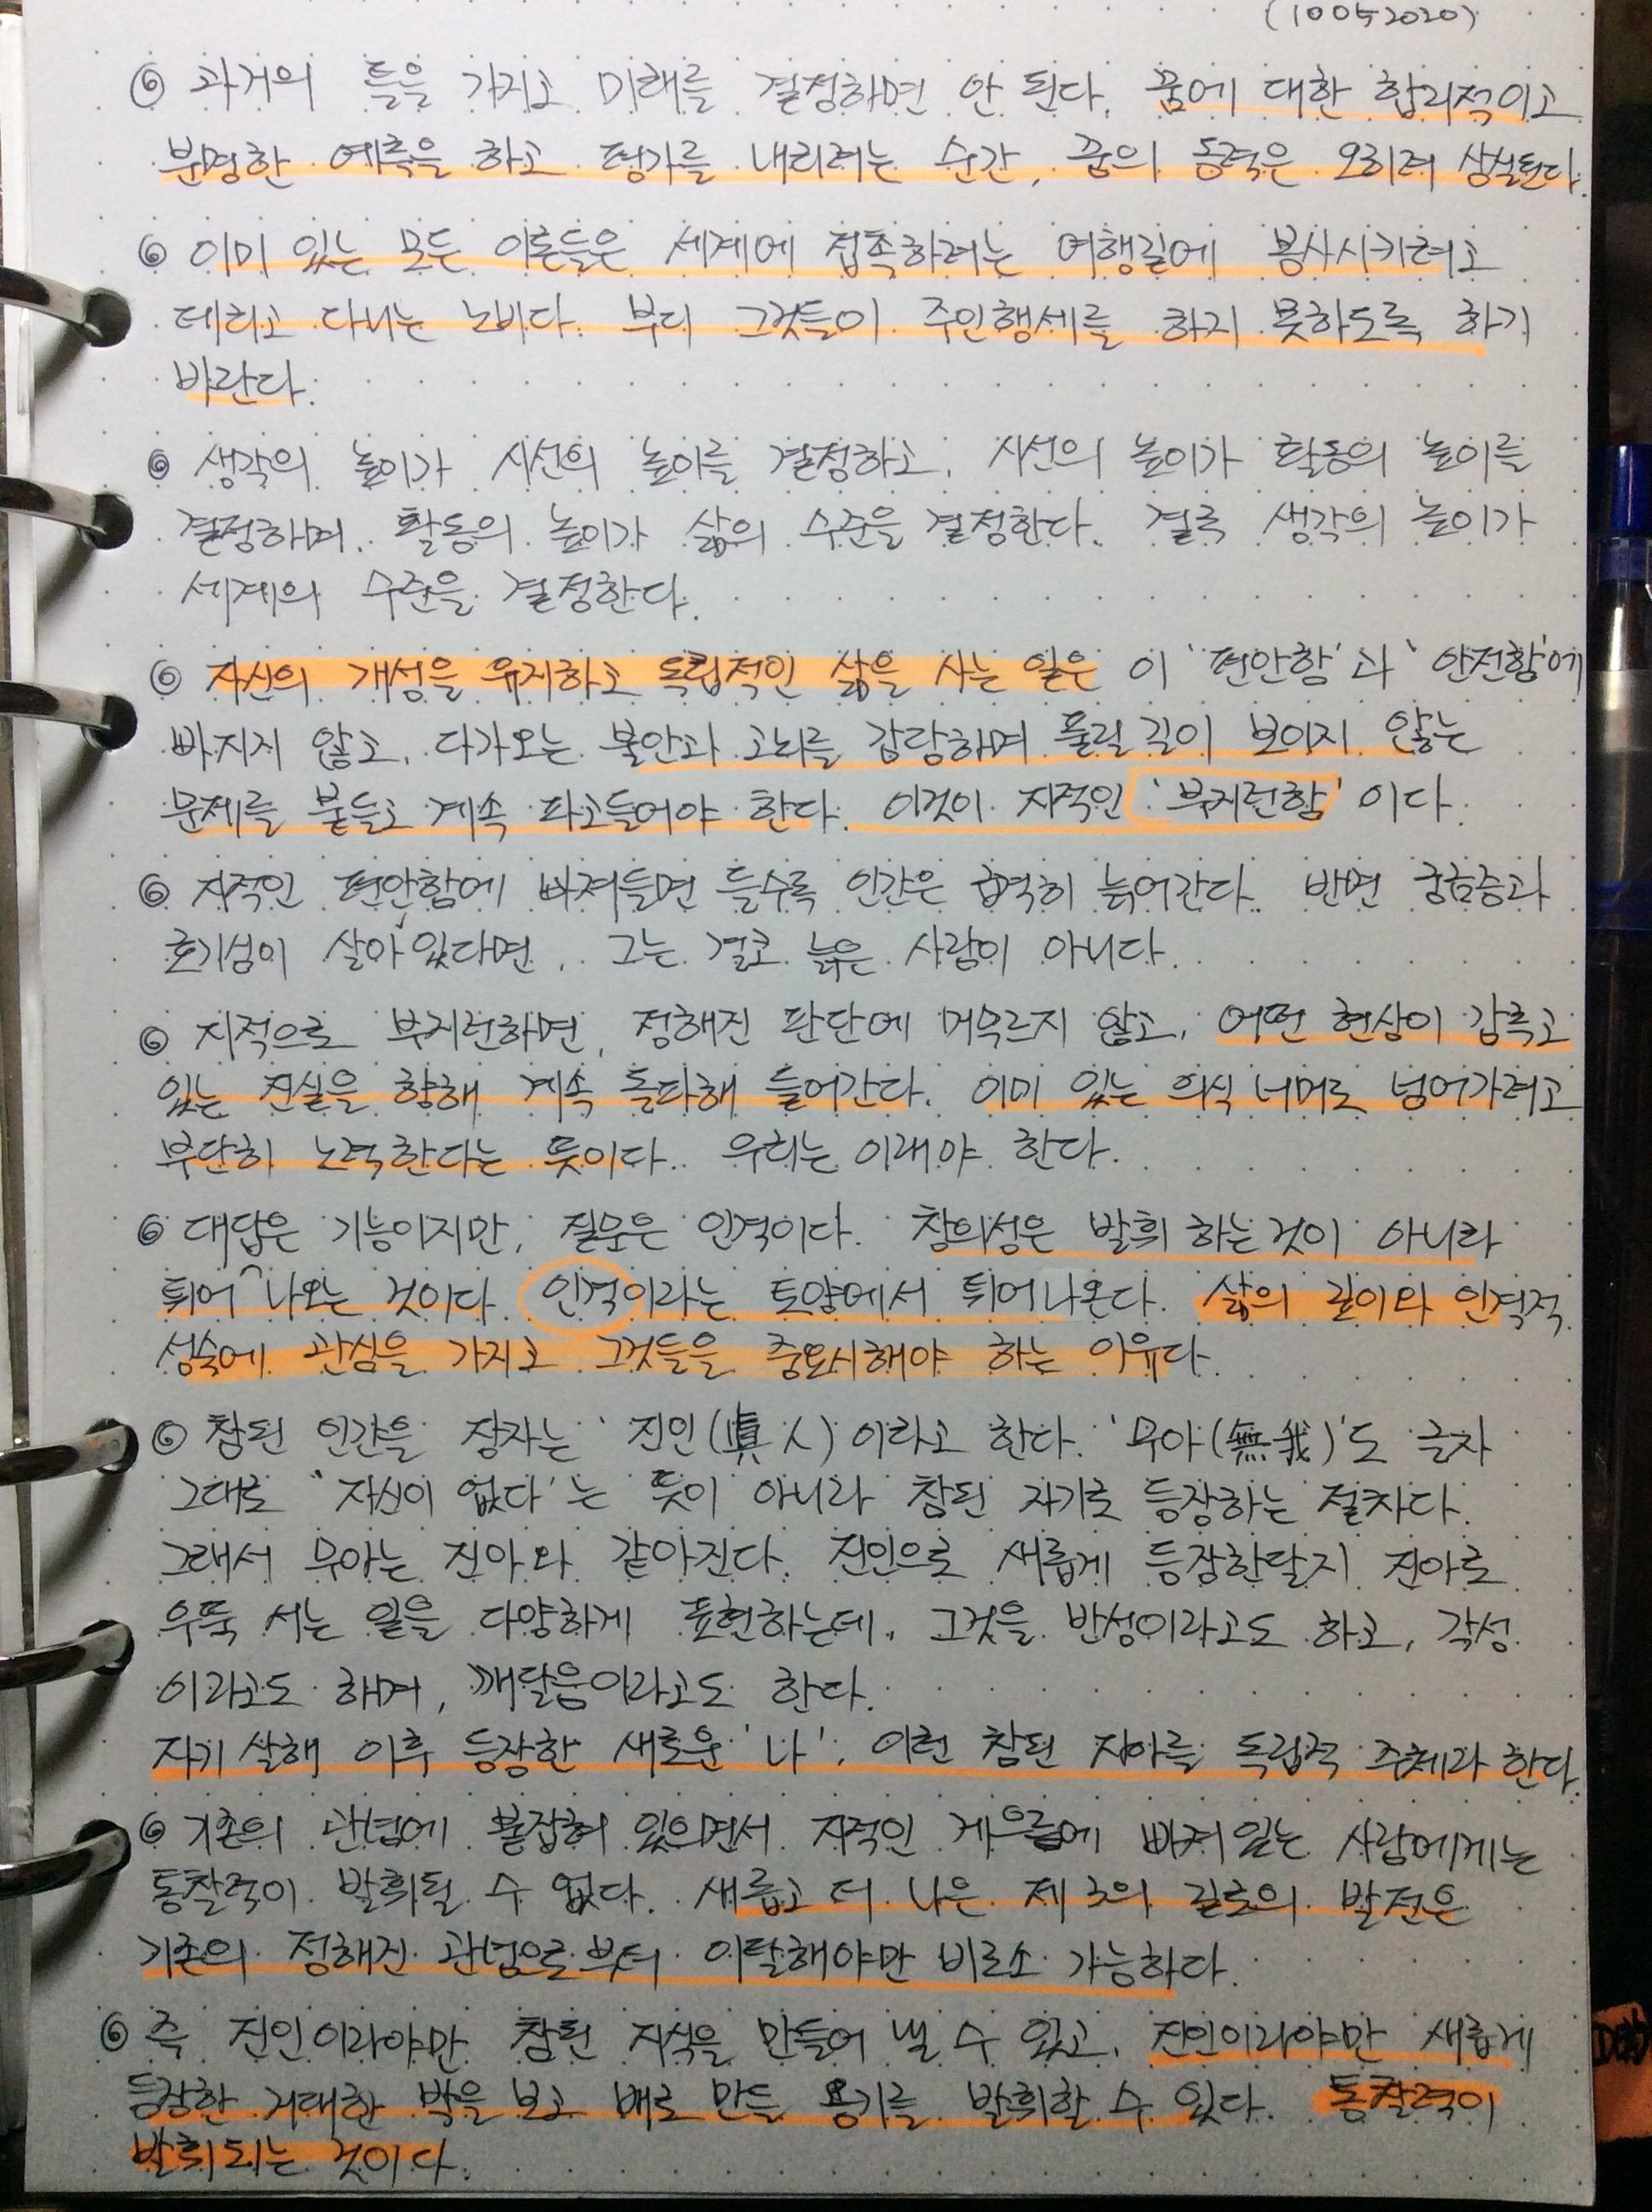 (10052020)
◎ 과거의 틀을 가지고 미래를 결정하면 안 된다. 꿈에 대한 합리적이고
분명한 예측을 하고 평가를 내리려는 순간, 꿈의 동력은 오히려 상실된다.
◎ 이미 있는 모든 이론들은 세계에 접촉하려는 여행길에 봉사시키려고
데리고 다니는 노비다. 부디 그것들이 주인행세를 하지 못하도록 하기
바란다.
◎ 생각의 높이가 시선의 높이를 결정하고, 시선의 높이가 활동의 높이를
결정하며, 활동의 높이가 삶의 수준을 결정한다. 결국 생각의 높이가
세계의 수준을 결정한다.
◎ 자신의 개성을 유지하고 독립적인 삶을 사는 일은 이 '편안함'과 '안전함'에
빠지지 않고, 다가오는 불안과 고뇌를 감당하며 풀릴 길이 보이지 않는
문제를 붙들고 계속 파고들어야 한다. 이것이 지적인 '부지런함'이다.
◎ 지적인 편안함에 빠져들면 들수록 인간은 급격히 늙어간다. 반면 궁금증과
호기심이 살아 있다면, 그는 결코 늙은 사람이 아니다.
◎ 지적으로 부지런하면, 정해진 판단에 머무르지 않고, 어떤 현상이 감추고
있는 진실을 향해 계속 돌파해 들어간다. 이미 있는 의식 너머로 넘어가려고
부단히 노력한다는 뜻이다. 우리는 이래야 한다.
◎ 대답은 기능이지만, 질문은 인격이다. 창의성은 발휘 하는 것이 아니라
튀어 나오는 것이다. 인격이라는 토양에서 튀어나온다. 삶의 깊이와 인격적
성숙에 관심을 가지고 그것들을 중요시해야 하는 이유다.
◎ 참된 인간을 장자는 '진인(眞人)이라고 한다. '무아(無我)'도 글자
그대로 '자신이 없다'는 뜻이 아니라 참된 자기로 등장하는 절차다.
그래서 무아는 진아와 같아진다. 진인으로 새롭게 등장한달지 진아로
우뚝 서는 일을 다양하게 표현하는데, 그것을 반성이라고도 하고, 각성
이라고도 하며, 깨달음이라고도 한다.
자기 살해 이후 등장한 새로운 '나', 이런 참된 자아를 독립적 주체라 한다.
◎ 기존의 관념에 붙잡혀 있으면서 지적인 게으름에 빠져있는 사람에게는
통찰력이 발휘될 수 없다. 새롭고 더 나은 제 3의 길로의 발전은
기존의 정해진 관념으로부터 이탈해야만 비로소 가능하다.
◎ 즉 진인이라야만 참된 지식을 만들어 낼 수 있고, 진인이라야만 새롭게
등장한 거대한 박을 보고 배로 만들 용기를 발휘할 수 있다. 통찰력이
발휘되는 것이다.